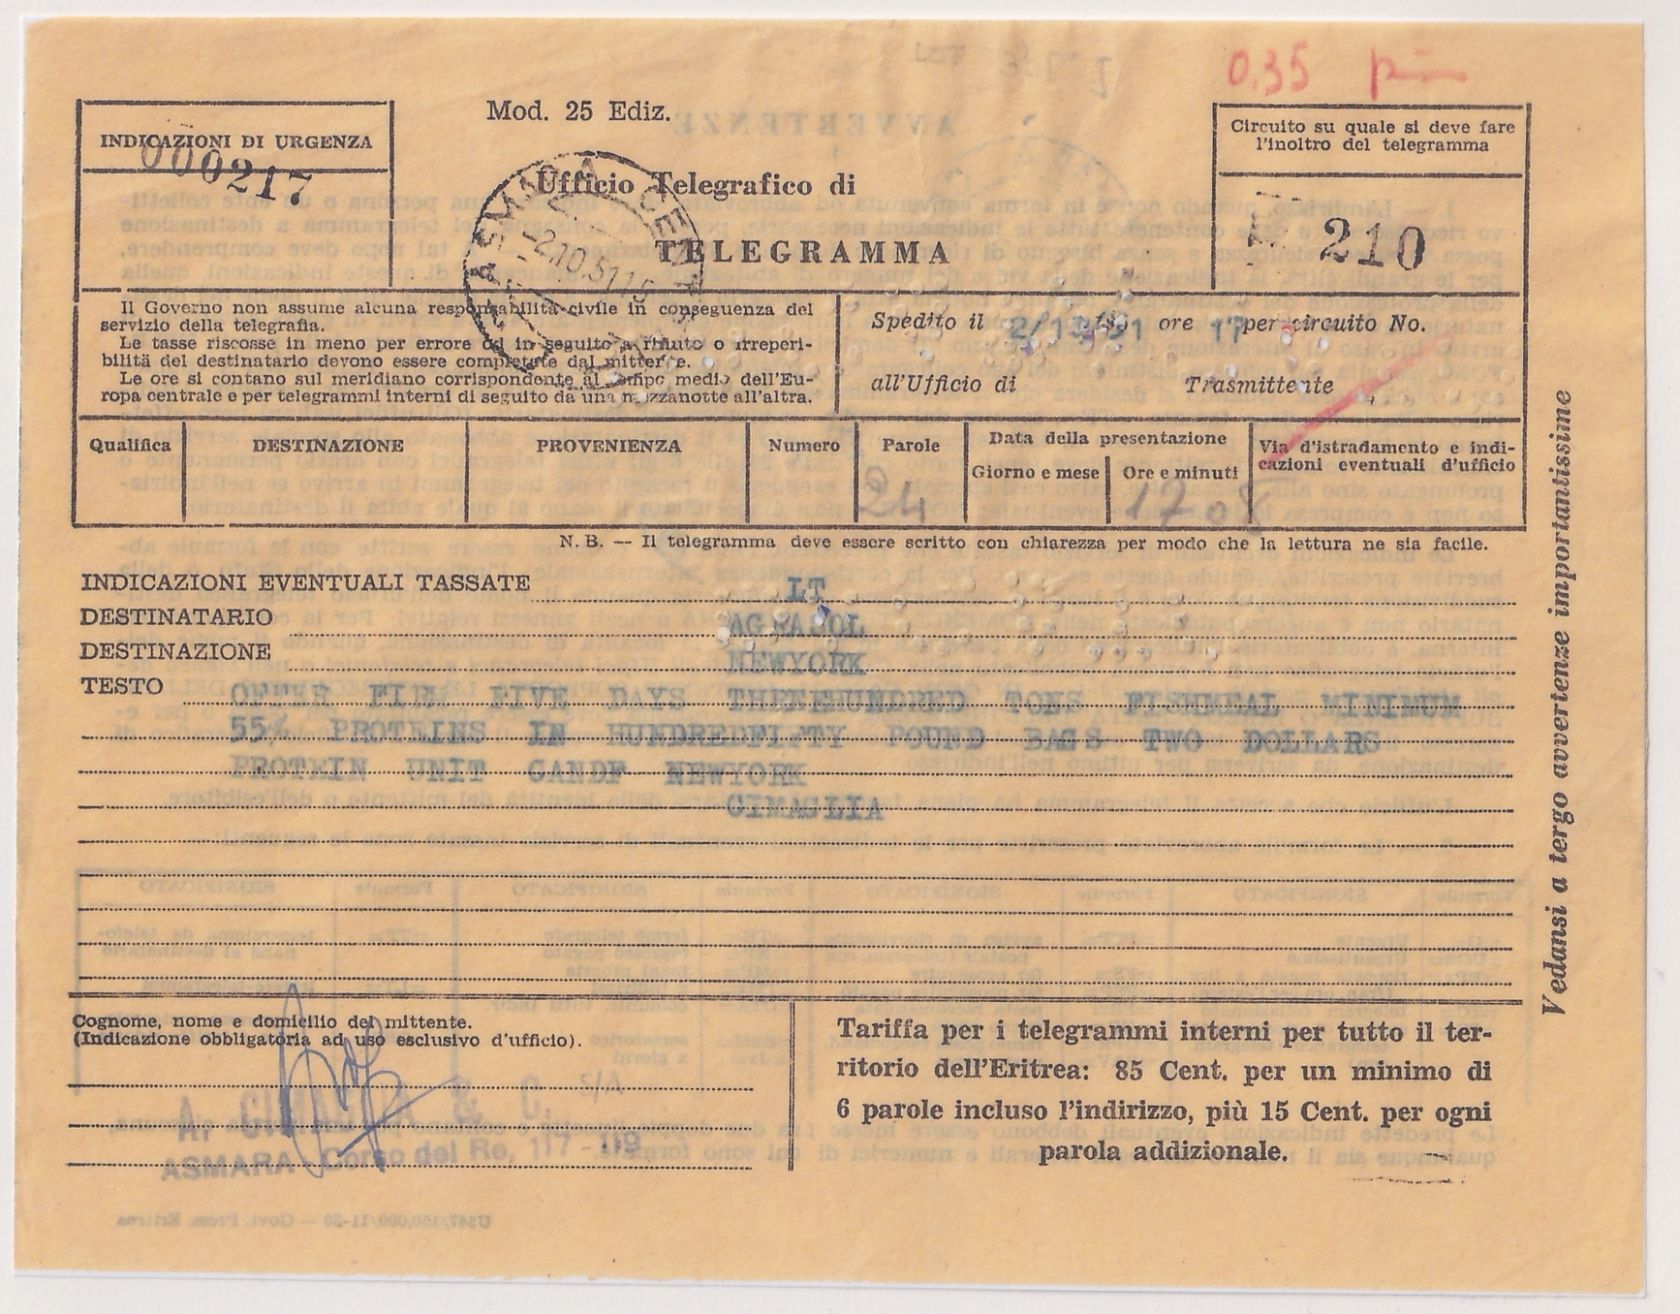 0,35
Mod. 25 Ediz.
INDICAZIONI DI URGENZA
000217
Ufficio Telegrafico di
TELEGRAMMA
ASMARA CEN
-2.10.51.1
Circuito su quale si deve fare
l'inoltro del telegramma
210
Il Governo non assume alcuna responsabilità civile in conseguenza del
servizio della telegrafia.
Le tasse riscosse in meno per errore od in seguito a rifiuto o irreperi-
bilità del destinatario devono essere completate dal mittente.
Le ore si contano sul meridiano corrispondente al tempo medio dell'Eu-
ropa centrale e per telegrammi interni di seguito da una mezzanotte all'altra.
Spedito il 2/10/51 ore 17 per circuito No.
all'Ufficio di Trasmittente
Qualifica DESTINAZIONE PROVENIENZA Numero Parole Data della presentazione Via d'istradamento e indi-
cazioni eventuali d'ufficio
Giorno e mese Ore e minuti
24 1708
N. B. — Il telegramma deve essere scritto con chiarezza per modo che la lettura ne sia facile.
INDICAZIONI EVENTUALI TASSATE LT
DESTINATARIO AGRABOL
DESTINAZIONE NEWYORK
TESTO OFFER FIRM FIVE DAYS THREEHUNDRED TONS FISHMEAL MINIMUM
55% PROTEINS IN HUNDREDFIFTY POUND BAGS TWO DOLLARS
PROTEIN UNIT CANDF NEWYORK
CIMAGLIA
Cognome, nome e domicilio del mittente.
(Indicazione obbligatoria ad uso esclusivo d'ufficio).
A. CIMAGLIA & C. S/A
ASMARA - Corso del Re, 117 - 119
Tariffa per i telegrammi interni per tutto il ter-
ritorio dell'Eritrea: 85 Cent. per un minimo di
6 parole incluso l'indirizzo, più 15 Cent. per ogni
parola addizionale.
Vedansi a tergo avvertenze importantissime